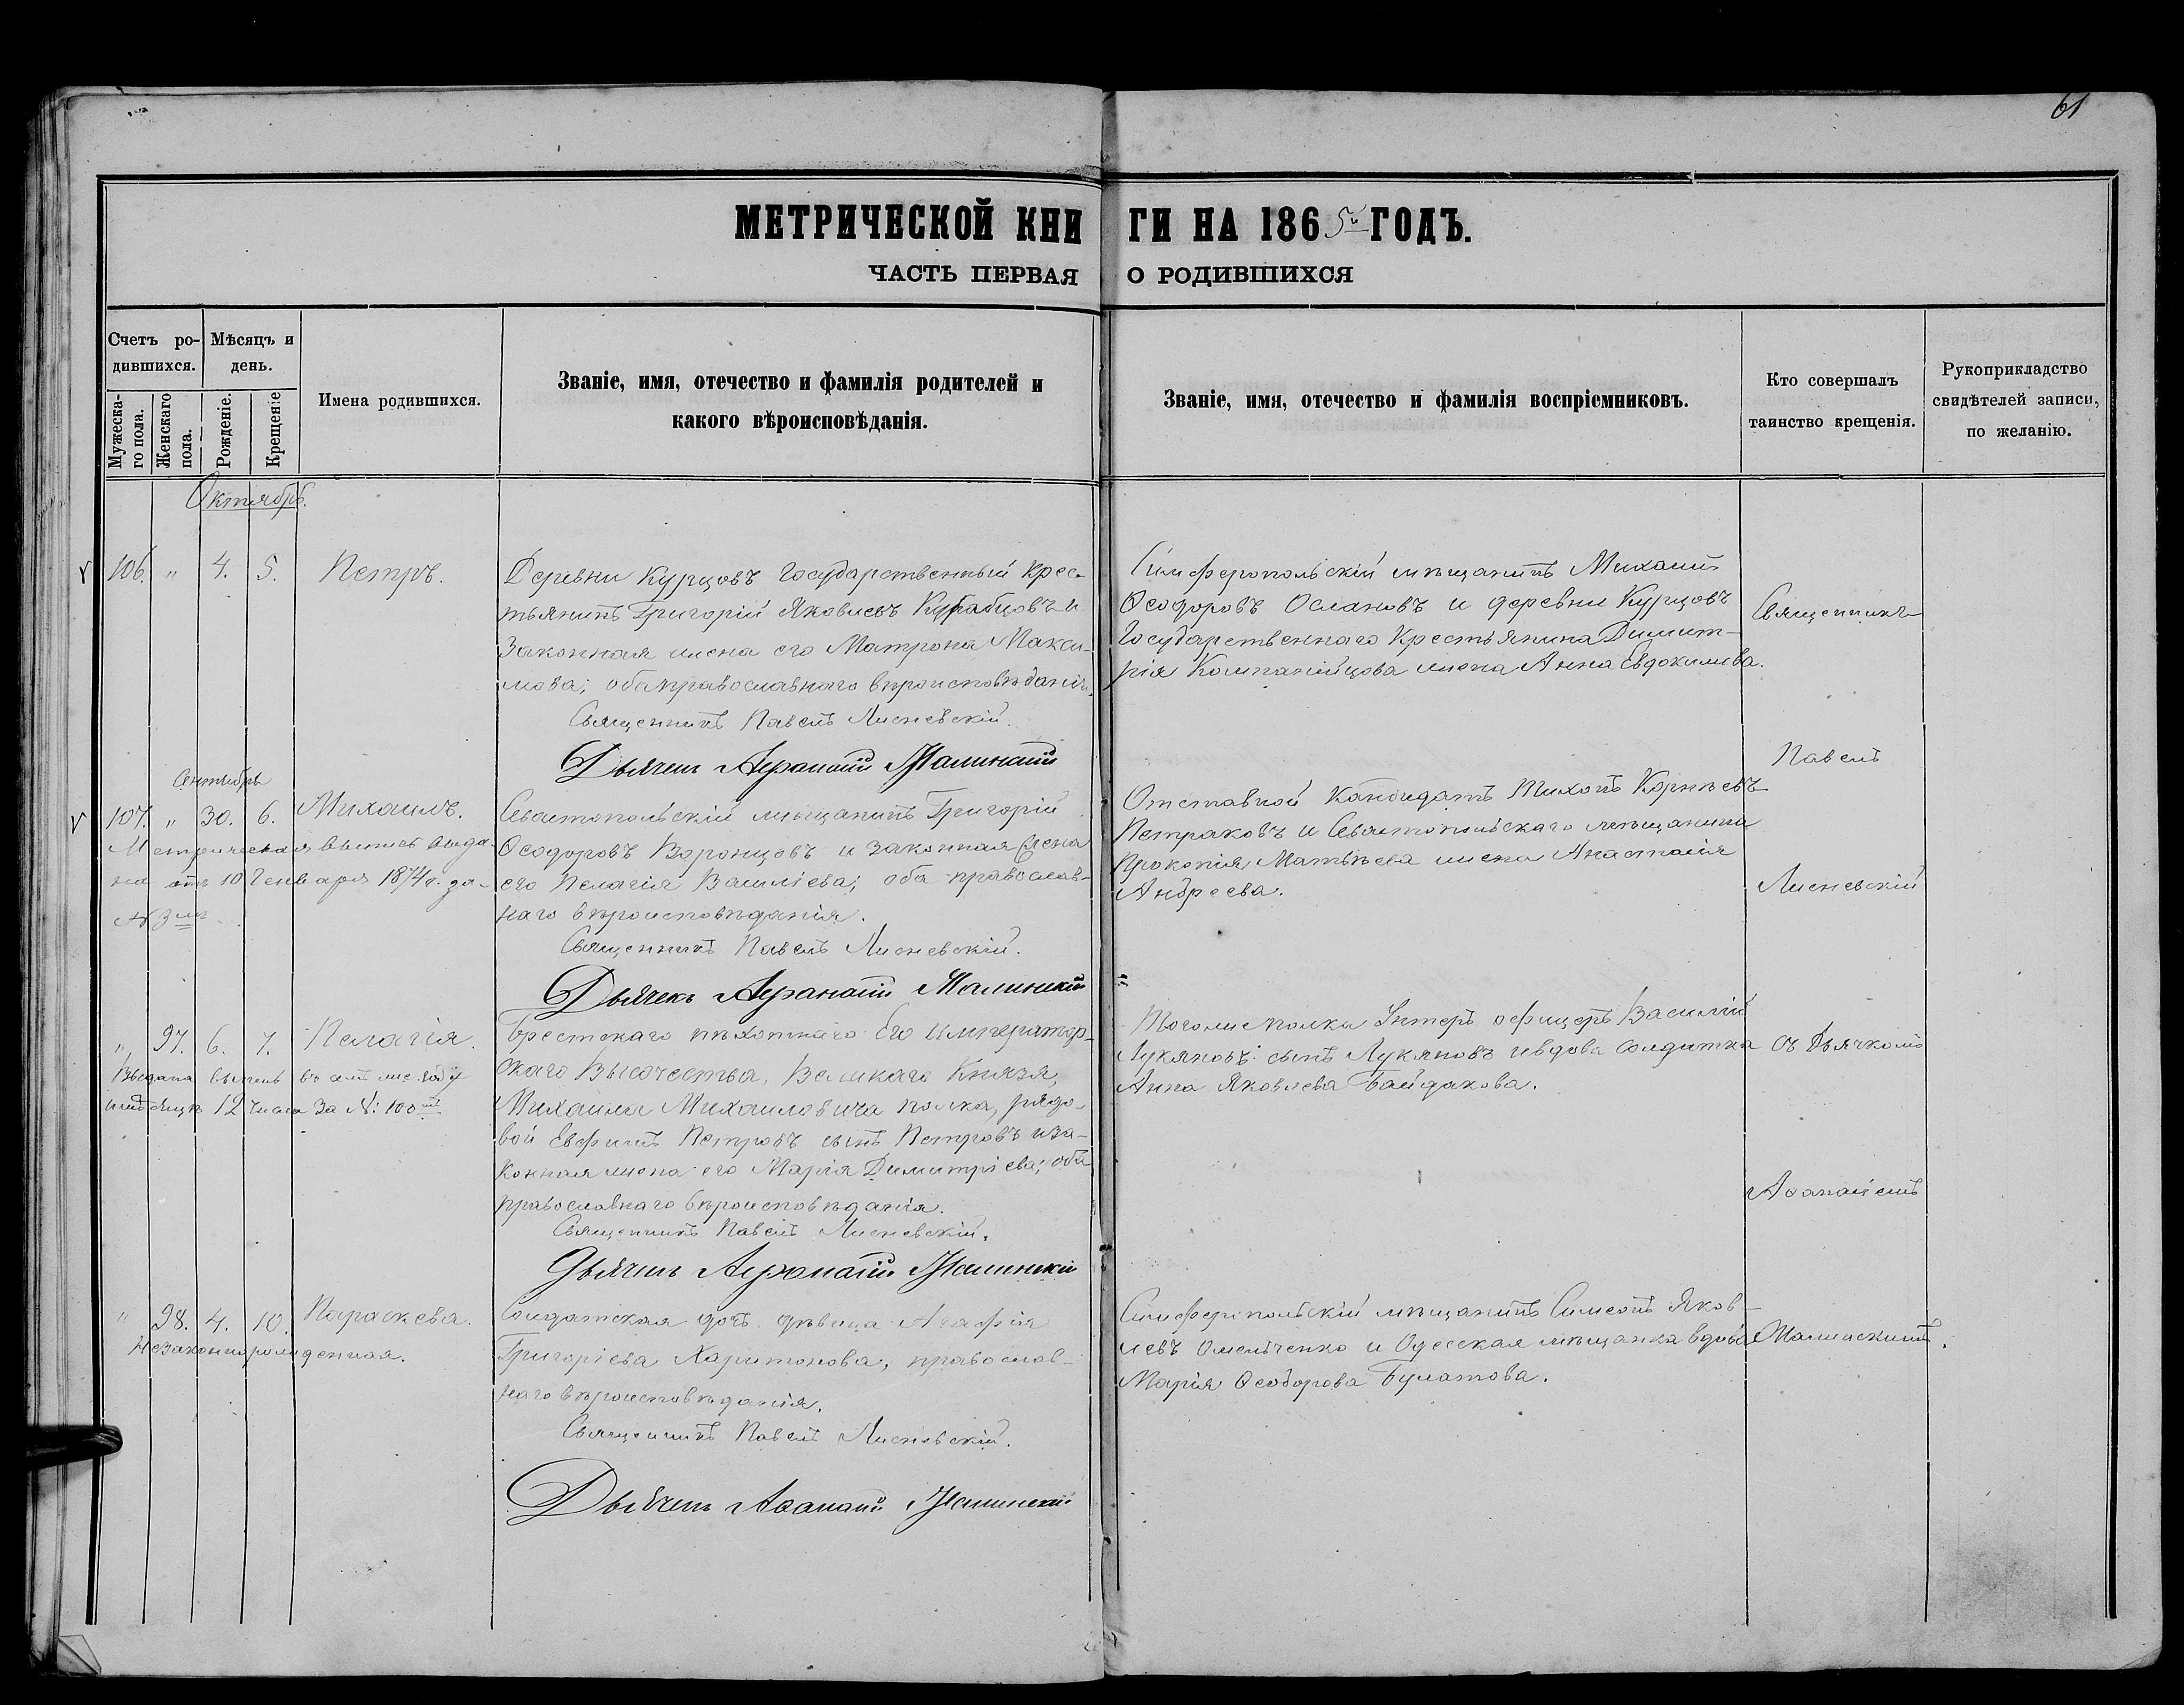 61
МЕТРИЧЕСКОЙ КНИГИ НА 1865й ГОДЪ.
ЧАСТЬ ПЕРВАЯ О РОДИВШИХСЯ
Счетъ родившихся.
Мужескаго пола.
Женскаго пола.
Мѣсяцъ и день.
Рожденіе.
Крещеніе
Имена родившихся.
Званіе, имя, отечество и фамилія родителей и
какого вѣроисповѣданія.
Званіе, имя, отечество и фамилія воспріемниковъ.
Кто совершалъ
таинство крещенія.
Рукоприкладство
свидѣтелей записи,
по желанію.
Октябрь.
106. " 4. 5. Петръ.
Деревни Курцовъ Государственный Крес-
тьянинъ Григорій Яковлевъ и
Законная жена его Матрона Макси-
мова; оба православнаго вѣроисповѣданія.
Священникъ Павелъ Лисневскій.
Дьячекъ Аѳанасій Малинскій
Симферопольскій мѣщанинъ Михаилъ
Ѳеодоровъ Ослановъ и деревни Курцовъ
Государственнаго Крестьянина Димит-
рія Компанійцова жена Анна Евдокимова.
Сентябрь
107. " 30. 6. Михаилъ.
Метрическая выпись выда-
на отъ 10 Генваря 1874 г. за
№ 3мъ
Севастопольскій мѣщанинъ Григорій
Ѳеодоровъ Воронцовъ и законная жена
его Пелагія Василіева; оба православ-
наго вѣроисповѣданія.
Священникъ Павелъ Лисневскій.
Дьячекъ Аѳанасій Малинскій
Отставной Кандидатъ Тихонъ Корнѣевъ
Петраковъ и Севастопольскаго мѣщанина
Прокопія Матвѣева жена Анастасія
Андреева.
" 97. 6. 7. Пелагія.
Выдана выпись въ
12 числа за №: 100мъ
Брестскаго пѣхотнаго Его Император-
скаго Высочества, Великаго Князя,
Михаила Михаиловича полка, рядо-
вой Евфимъ Петровъ сынъ Петровъ и за-
конная жена его Марія Димитріева; оба
православнаго вѣроисповѣданія.
Священникъ Павелъ Лисневскій.
Дьячекъ Аѳанасій Малинскій
Тогоже полка Унтеръ офицеръ Василій
Лукяновъ сынъ Лукяновъ и вдова солдатка
Анна Яковлева Байдакова.
" 98. 4. 10. Параскева.
Незаконнорожденная.
Солдатская дочь дѣвица Агафія
Григоріева Харитонова, православ-
наго вѣроисповѣданія.
Священникъ Павелъ Лисневскій.
Дьячекъ Аѳанасій Малинскій
Симферопольскій мѣщанинъ Симеонъ Яков-
левъ Омельченко и Одесская мѣщанка вдова
Марія Ѳеодорова Булатова.
Священникъ
Павелъ
Лисневскій
съ Дьячкомъ
Аѳанасіемъ
Малинскимъ.